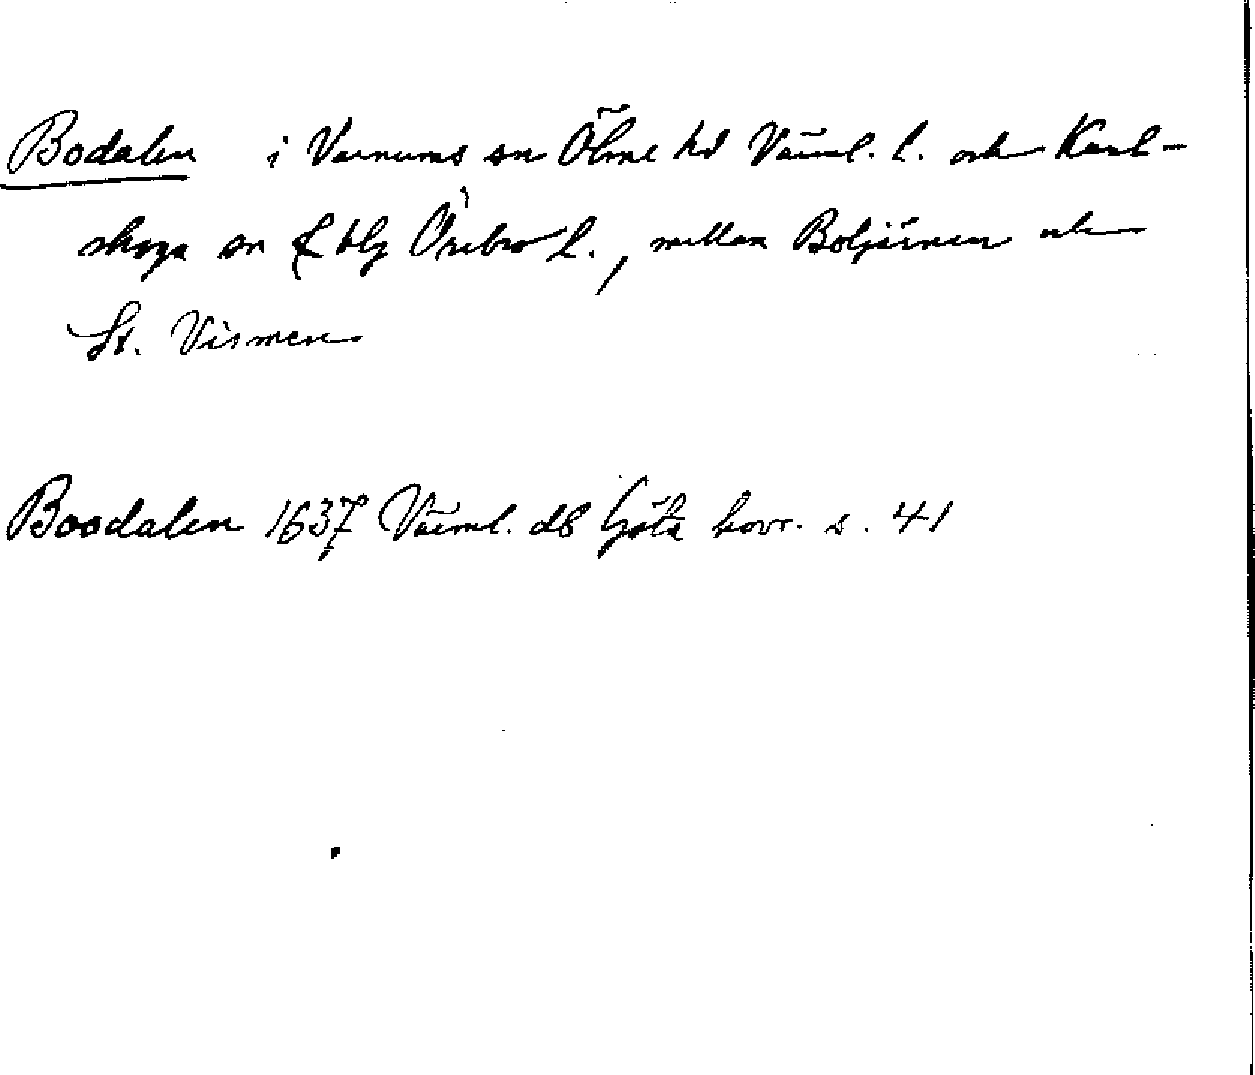 Bodalen i Varnums sn Ölme hd Värml. l. och Karl-
skoga sn & blg Örebro l., mellan Botjärnen och
St. Vismen
Boodalen 1637 Värml. dB Göta hovr. s. 41